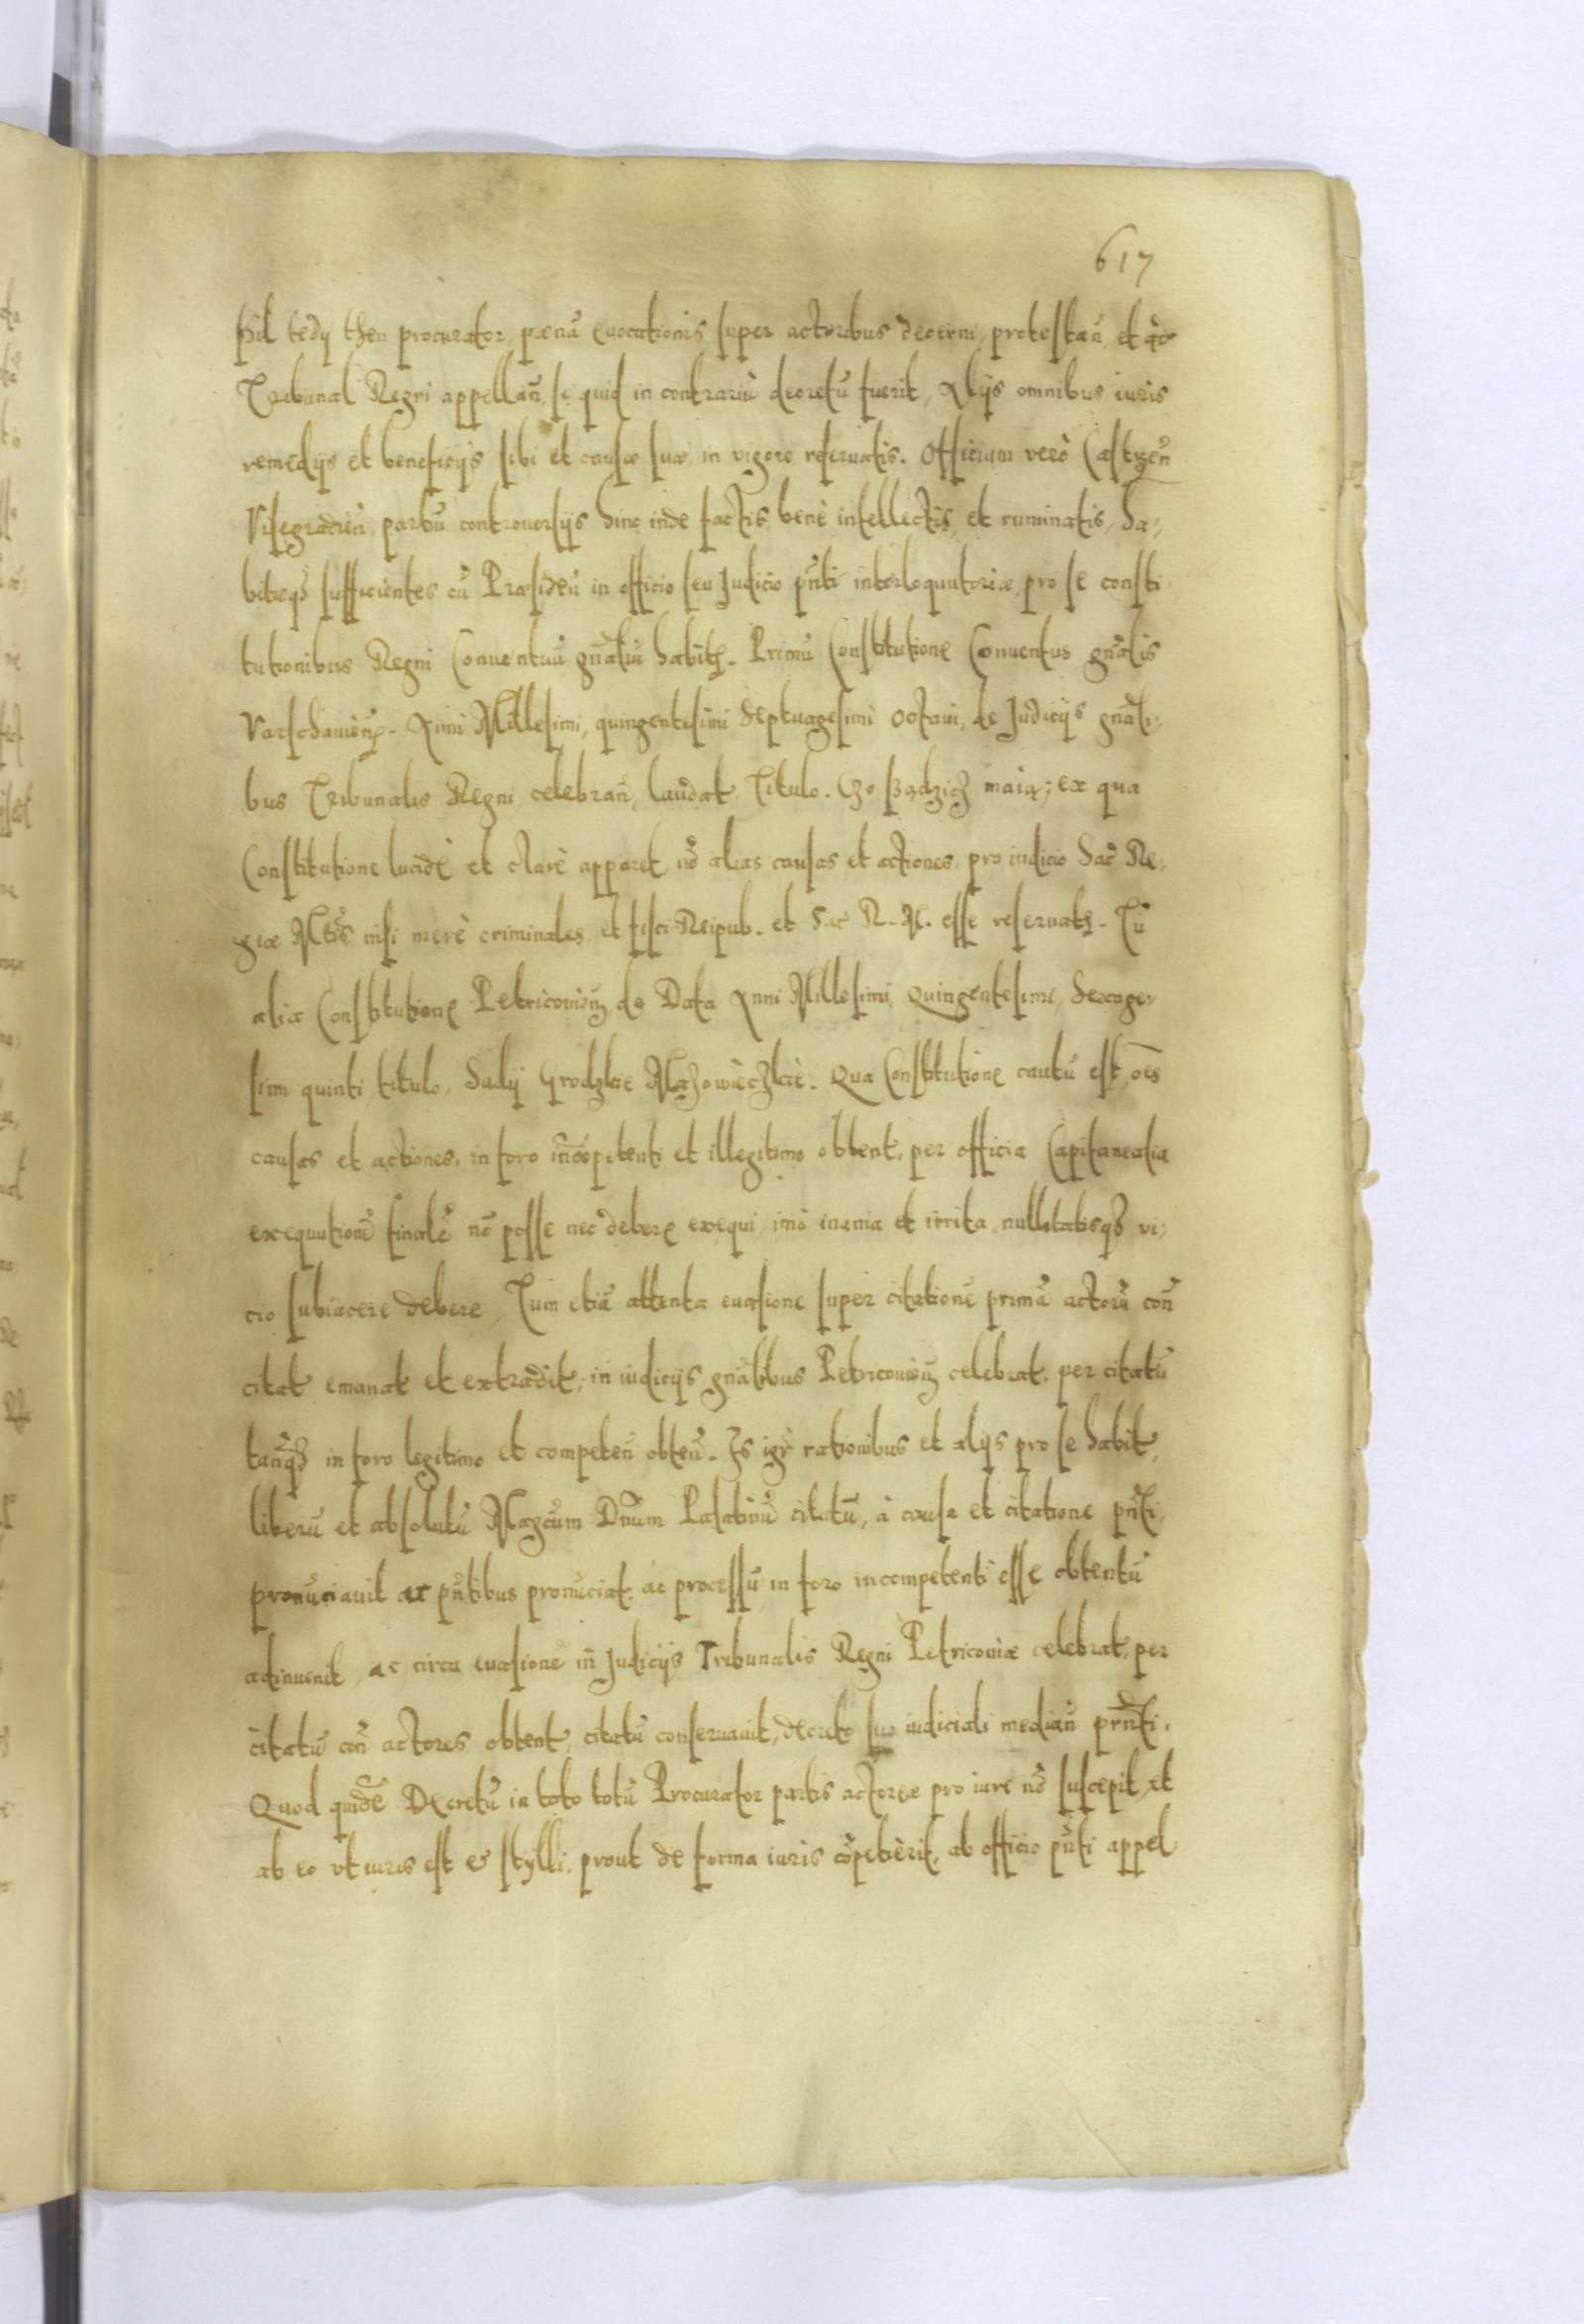 617
pił tedy then procurator, pœnā euocationis super actoribus decerni, protestan̄, et
Tribunal Regni appellan̄, si quid in contrariū decretū fuerit, Alijs omnibus iuris
remedijs et beneficijs sibi et causæ suæ in vigore reseruatis. Officium verò Castren̄
Visegradien̄, partiū controuersijs hinc inde factis, benè intellectis, et ruminatis, ha-
bitisq₃ sufficientes cū Præsiden̄ in officio seu Judicio pn̄ti interloquutoriæ, pro se consti
tutionibus Regni Conuentuū gn̄aliū habit. Primū Constitutione Conuentus gn̄alis
Varschauien̄. Anni Millesimi, quingentesimi Septuagesimi Octaui, de Judicijs gn̄ali-
bus Tribunalis Regni celebran̄, laudat Titulo. Czo sządzicz maią; ex qua
Constitutione lucidè et clarè apparet nō alias causas et actiones, pro iudicio Sac Re-
giæ Mtis nisi merè criminales, et fisci Reipub. et S. R. M. esse reseruat. Tū
alia Constitutione Petricouien̄ de Data Anni Millesimi Quingentesimi, Sexage-
simi quinti, titulo, Sady Grodzkie Mazowieczkie. Qua Constitutione cautū est, oēs
causas et actiones, in foro incōpetenti et illegitimo obtent, per officia Capitanealia
exequutionē finalē nō posse nec debere exequi, imò inania et irrita, nullitatisq₃ vi-
cio subiacere debere, Tum etiā attenta euasione super citationē primā actorū con̄
citat emanat et extradit, in iudicijs gn̄alibus Petricouien̄ celebrat, per citatū
tanq̄ in foro legitimo et competen̄ obten̄. Is igr rationibus et alijs pro se habit,
liberū et absolutū Magcum Dn̄um Palatinū citatū, à causa et citatione pn̄ti,
pronūciauit ac pn̄tibus pronūciat, ac processū in foro incompetenti esse obtentū
adinuenit, ac circa euasionē in Judicijs Tribunalis Regni Petricouiæ celebrat, per
citatū con̄ actores obtent, citatū conseruauit, decreto suo iudiciali median̄ prn̄ti.
Quod quidē Decretū in toto totū Procurator partis actoreæ pro iure nō suscepit, et
ab eo vt iuris est & stylli, prout de forma iuris cōpetierit, ab officio pn̄ti appel